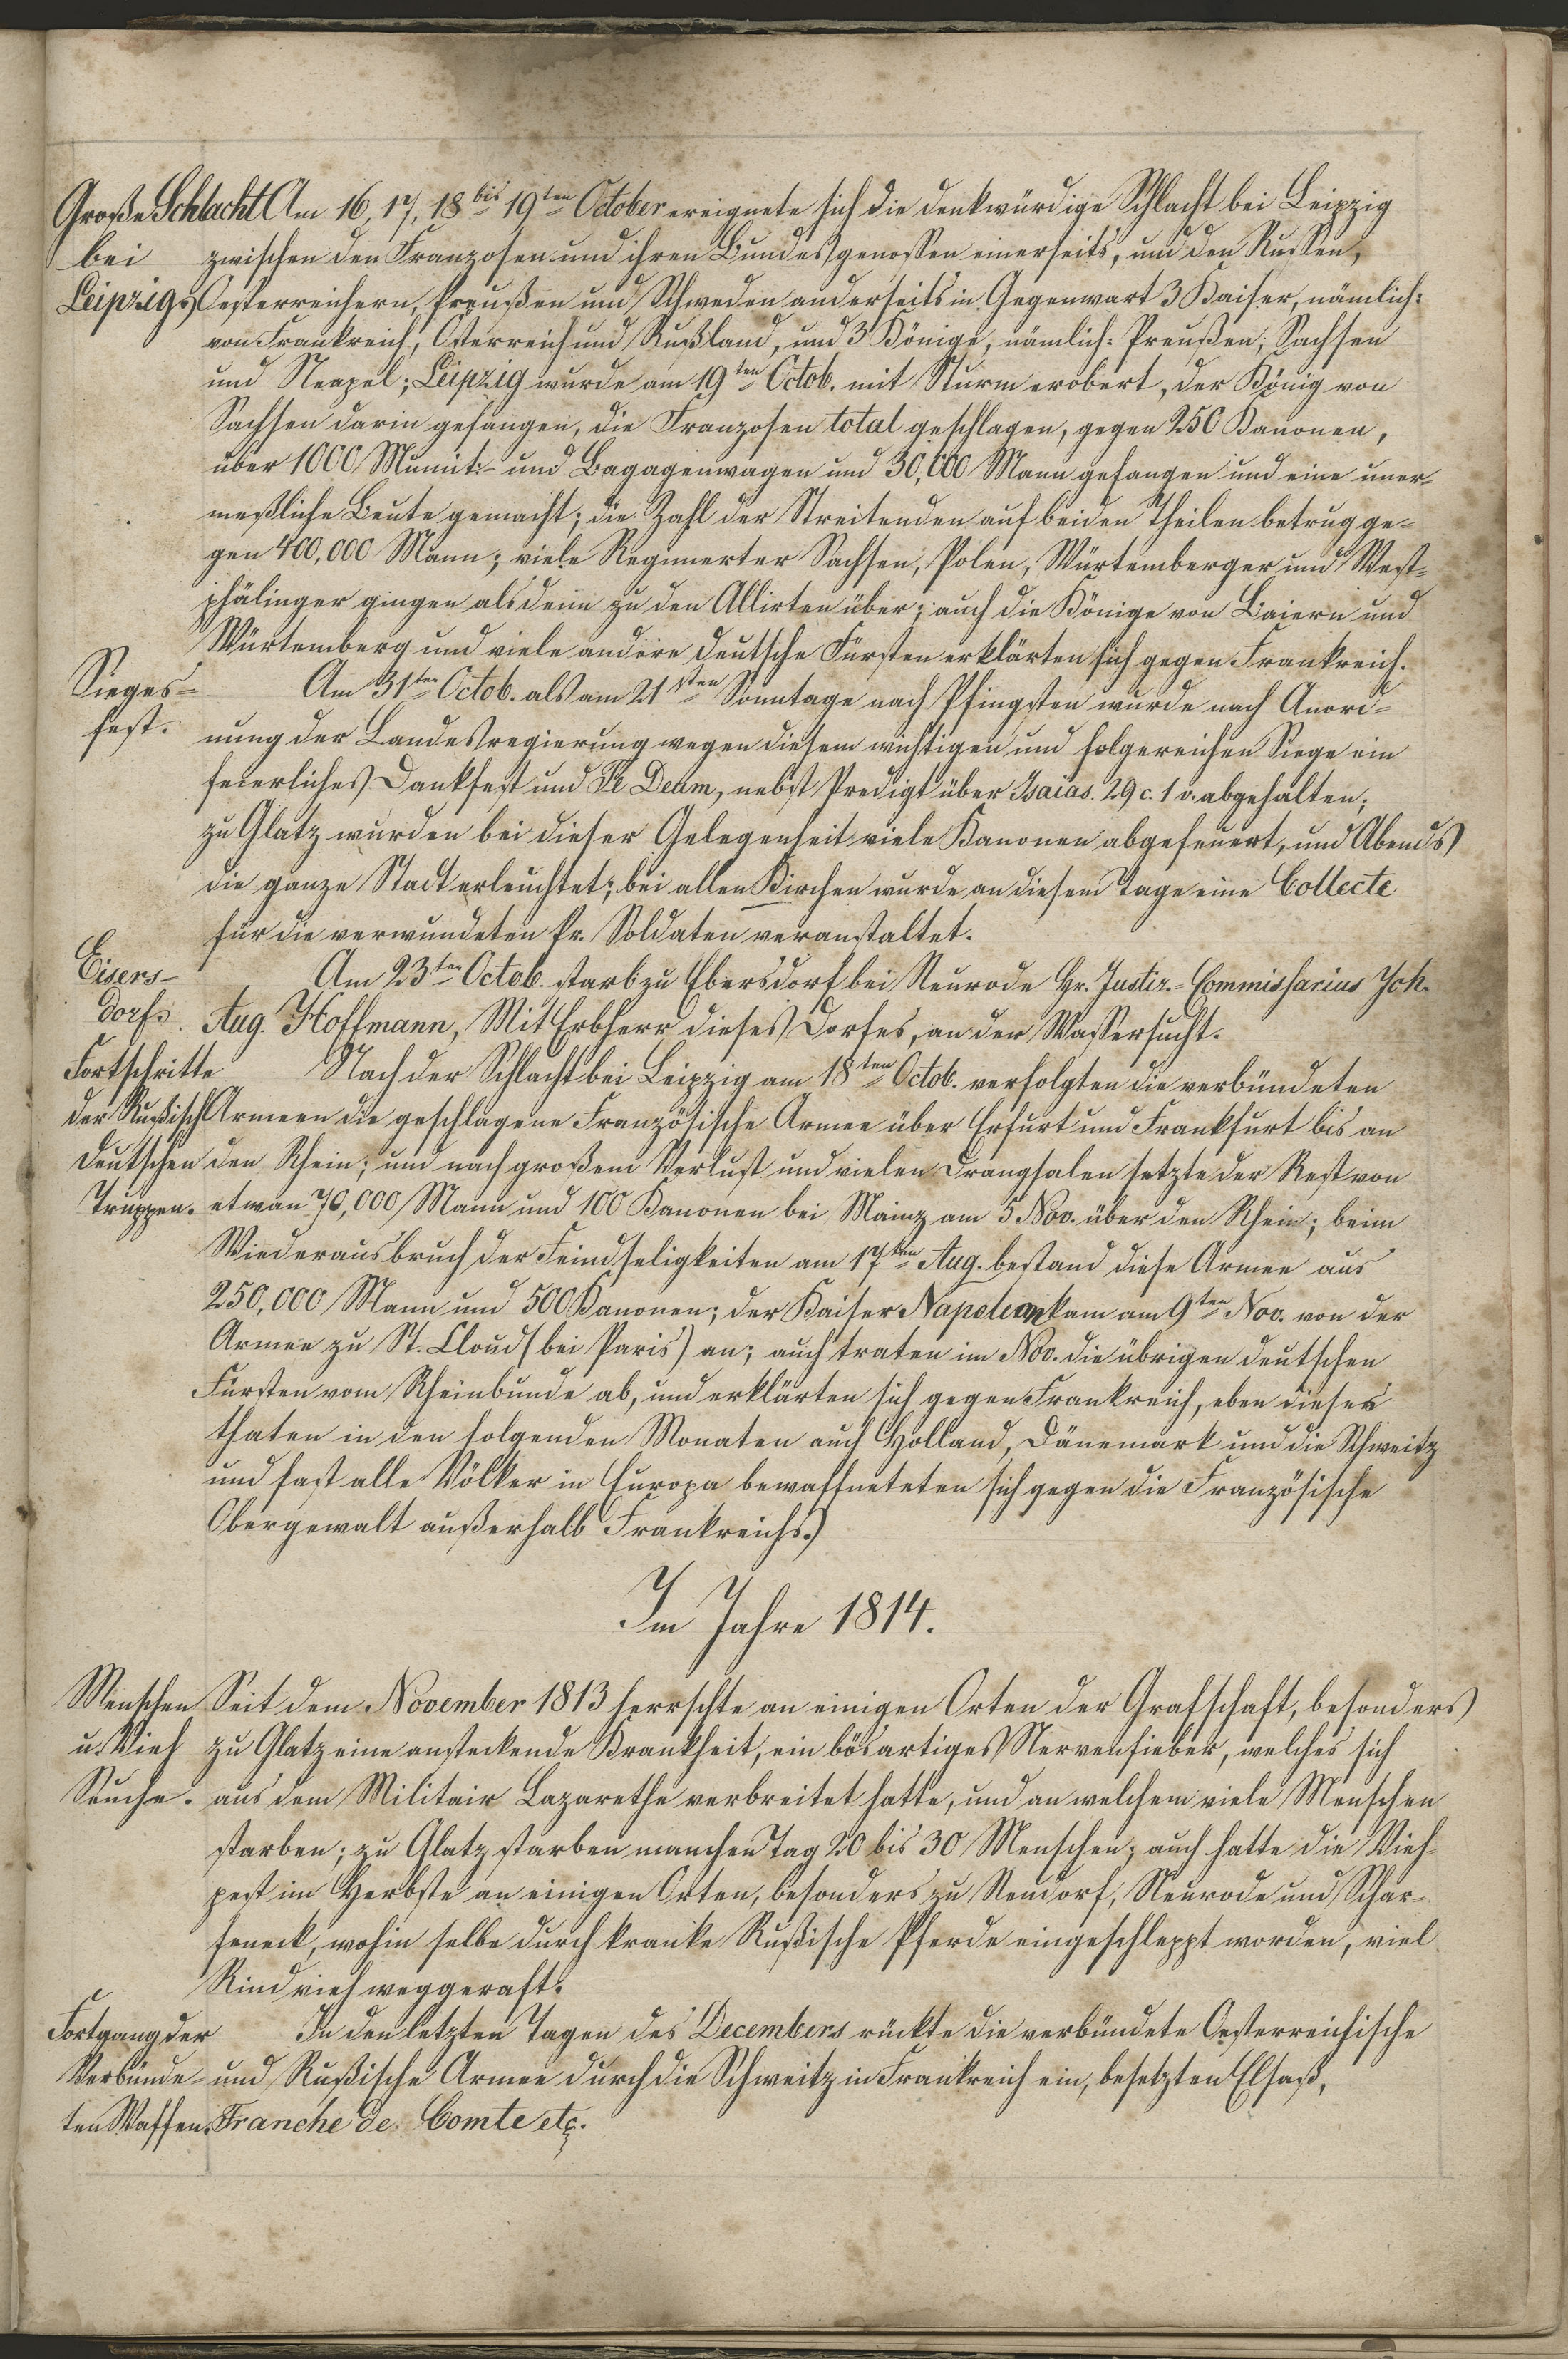 Große Schlacht Am 16, 17, 18 bis 19ten October ereignete sich die denkwürdige Schlacht bei Leipzig
bei zwischen den Franzosen und ihren Bundesgenossen einerseits, und den Russen,
Leipzig Oesterreichern, Preußen und Schweden anderseits in Gegenwart 3 Kaiser, nämlich:
von Frankreich, Osterreich und Rußland, und 3 Könige, nämlich: Preußen, Sachsen
und Neapel; Leipzig wurde am 19ten Octob. mit Sturm erobert, der König von
Sachsen darin gefangen, die Franzosen total geschlagen, gegen 250 Kanonen,
über 1000 Munit:- und Bagagenwagen und 30,000 Mann gefangen und eine uner-
meßliche Beute gemacht; die Zahl der Streitenden auf beiden Theilen betrug ge-
gen 400,000 Mann; viele Regimenter Sachsen, Polen, Würtemberger und West-
phälinger gingen alsdenn zu den Allirten über; auch die Könige von Baiern und
Würtemberg und viele andere deutsche Fürsten erklärten sich gegen Frankreich.
Sieges- Am 31ten Octob. als am 21sten Sonntage nach Pfingsten wurde nach Anord-
fest. nung der Landesregierung wegen diesem wichtigen und folgereichen Siege ein
feierliches Dankfest und Te Deum, nebst Predigt über Isaias. 29 c. 1 v. abgehalten;
zu Glatz wurden bei dieser Gelegenheit viele Kanonen abgefeuert, und Abends
die ganze Stadt erleuchtet; bei allen Kirchen wurde an diesem Tage eine Collecte
für die verwundeten Pr. Soldaten veranstaltet.
Eisers- Am 23ten Octob. starb zu Ebersdorf bei Neurode Hr. Justiz.-Commissarius Joh.
dorf. Aug. Hoffmann, Mit Erbherr dieses Dorfes, an der Wassersucht.
Fortschritte Nach der Schlacht bei Leipzig am 18ten Octob. verfolgten die verbündeten
der Rußisch Armeen die geschlagene Französische Armee über Erfurt und Frankfurt bis an
deutschen den Rhein; und nach großem Verlust und vielen Drangsalen setzte der Rest von
Truppen. etwan 70,000 Mann und 100 Kanonen bei Mainz am 5 Nov. über den Rhein; beim
Wiederausbruch der Feindseligkeiten am 17ten Aug. bestand diese Armee aus
250,000 Mann und 500 Kanonen; der Kaiser Napoleon kam am 9ten Nov. von der
Armee zu St. Cloud (bei Paris) an; auch traten im Nov. die übrigen deutschen
Fürsten vom Rheinbunde ab, und erklärten sich gegen Frankreich, eben dieses
thaten in den folgenden Monaten auch Holland, Dänemark und die Schweitz
und fast alle Völker in Europa bewaffneteten sich gegen die Französische
Obergewalt außerhalb Frankreichs.
Im Jahre 1814.
Menschen Seit dem November 1813 herrschte an einigen Orten der Grafschaft, besonders
u. Vieh zu Glatz eine ansteckende Krankheit, ein bösartiges Nervenfieber, welches sich
Seuche. aus dem Militair Lazarethe verbreitet hatte, und an welchem viele Menschen
starben; zu Glatz starben manchen Tag 20 bis 30 Menschen; auch hatte die Vieh-
pest im Herbste an einigen Orten, besonders zu Neudorf, Neurode und Schar-
feneck, wohin selbe durch kranke Rußische Pferde eingeschleppt worden, viel
Rindvieh weggeraft.
Fortgang der In den letzten Tagen des Decembers rückte die verbündete Oesterreichische
Verbünde- und Rußische Armee durch die Schweitz in Frankreich ein, besetzten Elsaß,
ten Waffen. Franche de Comte etc.